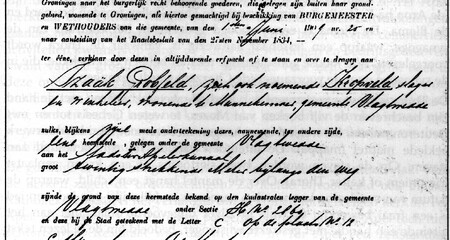 Groningen naar het burgerlijk recht behoorende goederen, diegelegen zijn buiten haar grond-
gebied, wonende te Groningen, als hiertoe gemachtigd bij beschikking van BURGEMEESTER
en WETHOUDERS van die gemeente, van den 1sten Juni 1919 nr. 20 en
naar aanleiding van het Raadsbesluit van den 27sten November 1834, —
ter Ene, verklaar door dezen in altijddurende erfpacht af te staan en over te dragen aan
Izaäk Kropveld, zich ook noemende Kropveld, slager
en winkelier, wonende te Musselkanaal, gemeente Vlagtwedde
zulks, blijkens zijne mede onderteekening dezes, aannemende, ter andere zijde,
eene heemstede, gelegen onder de gemeente Vlagtwedde
aan het Stadster
groot twintig strekkende Meter bijlangs den weg
zijnde de grond van deze heemstede bekend op den kadastralen legger van de gemeente
Vlagtwedde onder Sectie H. Nr.
en deze bij de Stad geteekend met de Letter C Op de plaats Nr. 18